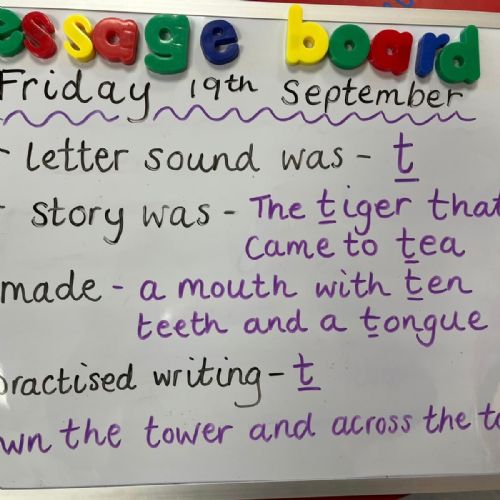 essage board
Friday 19th September
letter sound was - t
story was - The tiger that
came to tea
made - a mouth with ten
teeth and a tongue
practised writing - t
wn the tower and across the to